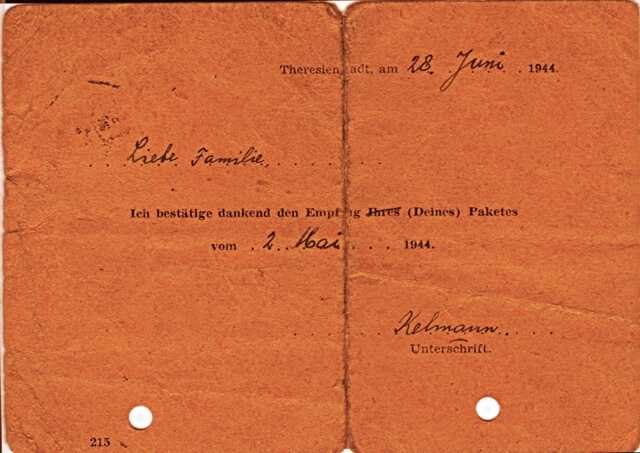 Theresienstadt, am 28. Juni . 1944.
. . Liebe Familie, . . . . . . . .
Ich bestätige dankend den Empfang Ihres (Deines) Paketes
vom . 2. Mai . . . . 1944.
. . . . . . . Kelmann . . . .
Unterschrift.
215